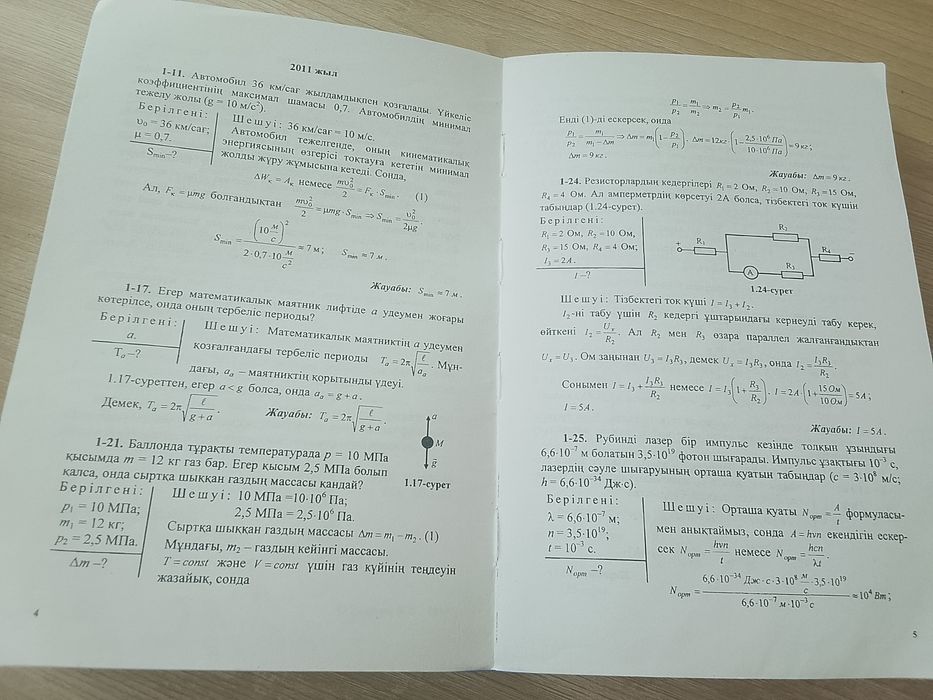 2011 жыл
1-11. Автомобил 36 км/сағ жылдамдықпен қозғалады. Үйкеліс
коэффициентінің максимал шамасы 0,7. Автомобилдің минимал
тежелу жолы (g = 10 м/с²)
Берілгені:
υ₀ = 36 км/сағ;
μ = 0,7.
Sₘᵢₙ–?
Шешуі: 36 км/сағ = 10 м/с.
Автомобил тежелгенде, оның кинематикалық
энергиясының өзгерісі тоқтауға кететін минимал
жолды жүру жұмысына кетеді. Сонда,
ΔWₖ = Aₖ немесе mυ₀²/2 = Fₖ · Sₘᵢₙ. (1)
Ал, Fₖ = μmg болғандықтан mυ₀²/2 = μmg · Sₘᵢₙ ⇒ Sₘᵢₙ = υ₀²/2μg.
Sₘᵢₙ = (10 м/с)² / (2·0,7·10 м/с²) ≈ 7 м; Sₘᵢₙ ≈ 7 м.
Жауабы: Sₘᵢₙ ≈ 7 м.
1-17. Егер математикалық маятник лифтіде a удеумен жоғары
көтерілсе, онда оның тербеліс периоды?
Берілгені:
a.
Tₐ–?
Шешуі: Математикалық маятниктің a удеумен
қозғалғандағы тербеліс периоды Tₐ = 2π√(ℓ/aₐ). Мұн-
дағы, aₐ – маятниктің қорытынды үдеуі.
1.17-суреттен, егер a < g болса, онда aₐ = g + a.
Демек, Tₐ = 2π√(ℓ/(g+a)). Жауабы: Tₐ = 2π√(ℓ/(g+a)).
a
M
g⃗
1.17-сурет
1-21. Баллонда тұрақты температурада p = 10 МПа
қысымда m = 12 кг газ бар. Егер қысым 2,5 МПа болып
қалса, онда сыртқа шыққан газдың массасы қандай?
Берілгені:
p₁ = 10 МПа;
m₁ = 12 кг;
p₂ = 2,5 МПа.
Δm –?
Шешуі: 10 МПа =10·10⁶ Па;
2,5 МПа = 2,5·10⁶ Па.
Сыртқа шыққан газдың массасы Δm = m₁ – m₂. (1)
Мұндағы, m₂ – газдың кейінгі массасы.
T = const және V = const үшін газ күйінің теңдеуін
жазайық, сонда
4
p₁/p₂ = m₁/m₂ ⇒ m₂ = p₂/p₁ m₁.
Енді (1)-ді ескерсек, онда
p₁/p₂ = m₁/(m₁ – Δm) ⇒ Δm = m₁(1 – p₂/p₁). Δm = 12кг·(1 – 2,5·10⁶ Па/10·10⁶ Па) = 9 кг;
Δm = 9 кг.
Жауабы: Δm = 9 кг.
1-24. Резисторлардың кедергілері R₁ = 2 Ом, R₂ = 10 Ом, R₃ = 15 Ом,
R₄ = 4 Ом. Ал амперметрдің көрсетуі 2А болса, тізбектегі ток күшін
табыңдар (1.24-сурет).
Берілгені:
R₁ = 2 Ом, R₂ = 10 Ом,
R₃ = 15 Ом, R₄ = 4 Ом;
I₃ = 2А.
I–?
+ R₁ R₂ R₄ –
A R₃
1.24-сурет
Шешуі: Тізбектегі ток күші I = I₃ + I₂.
I₂-ні табу үшін R₂ кедергі ұштарындағы кернеуді табу керек,
өйткені I₂ = Uₓ/R₂. Ал R₂ мен R₃ өзара параллел жалғанғандықтан
Uₓ = U₃. Ом заңынан U₃ = I₃R₃, демек Uₓ = I₃R₃, онда I₂ = I₃R₃/R₂.
Сонымен I = I₃ + I₃R₃/R₂ немесе I = I₃(1 + R₃/R₂). I = 2А·(1 + 15Ом/10Ом) = 5А;
I = 5А.
Жауабы: I = 5А.
1-25. Рубинді лазер бір импульс кезінде толқын ұзындығы
6,6·10⁻⁷ м болатын 3,5·10¹⁹ фотон шығарады. Импульс ұзақтығы 10⁻³ с,
лазердің сәуле шығаруының орташа қуатын табыңдар (c = 3·10⁸ м/с;
h = 6,6·10⁻³⁴ Дж·с).
Берілгені:
λ = 6,6·10⁻⁷ м;
n = 3,5·10¹⁹;
t = 10⁻³ с.
Nорт –?
Шешуі: Орташа қуаты Nорт = A/t формуласы-
мен анықтаймыз, сонда A = hνn екендігін ескер-
сек Nорт = hνn/t немесе Nорт = hcn/λt.
Nорт = (6,6·10⁻³⁴ Дж·с·3·10⁸ м/с·3,5·10¹⁹)/(6,6·10⁻⁷ м·10⁻³ с) ≈ 10⁴ Вт;
5